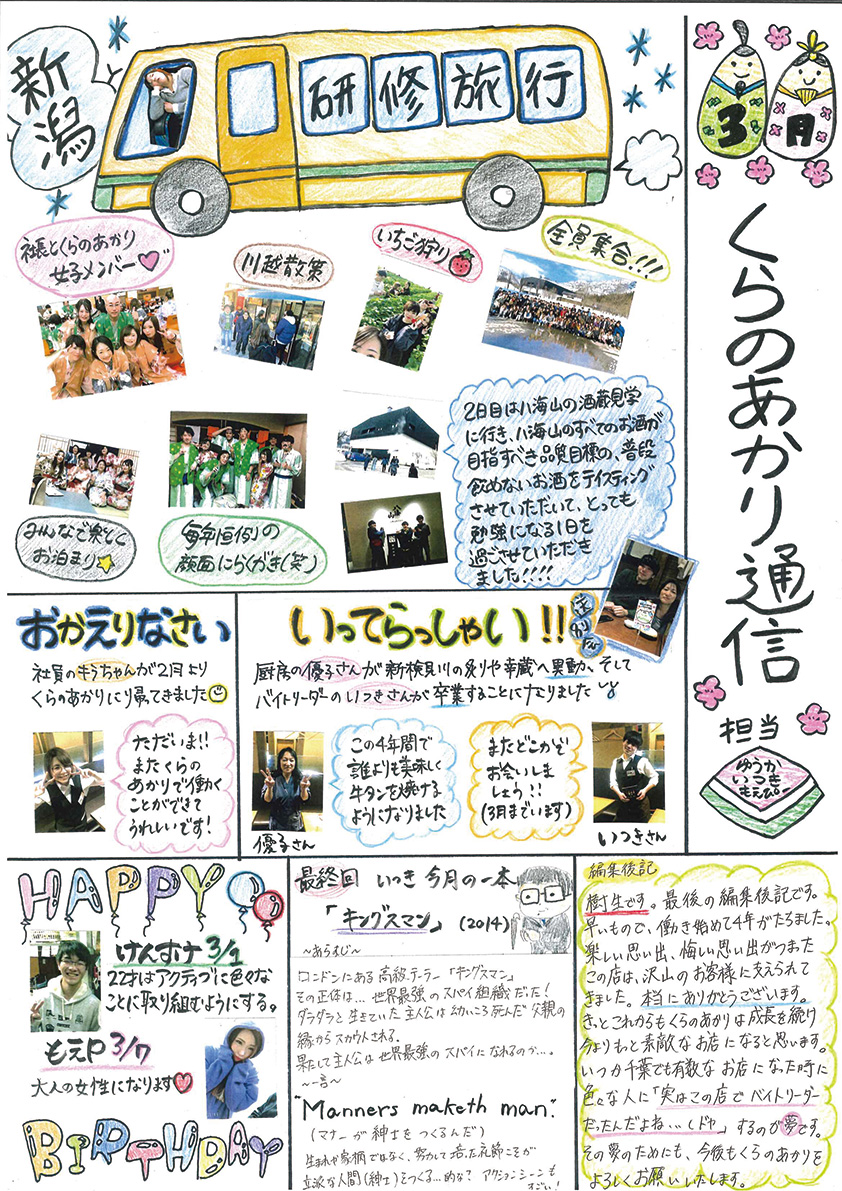 新潟
研修旅行
3月
くらのあかり通信
担当
ゆうか
いつき
もえぴー
社長とくらのあかり
女子メンバー
川越散策
いちご狩り
全員集合!!!
みんなで楽しく
お泊まり
毎年恒例の
顔面にらくがき(笑)
2日目は八海山の酒蔵見学
に行き、八海山のすべてのお酒が
目指すべき品質目標の、普段
飲めないお酒をテイスティング
させていただいて、とっても
勉強になる1日を
過ごさせていただき
ました!!!!
おかえりなさい
社員のきうちゃんが2月より
くらのあかりにり帰ってきました
ただいま!!
またくらの
あかりで働く
ことができて
うれしいです!
いってらっしゃい!!
厨房の優子さんが新検見川の炙りや幸蔵へ異動、そして
バイトリーダーのいつきさんが卒業することになりました
この4年間で
誰よりも美味しく
牛タンを焼ける
ようになりました
優子さん
またどこかで
お会いしま
しょう!!
(3月までいます)
いつきさん
HAPPY
けんすけ 3/1
22才はアクティブに色々な
ことに取り組むようにする。
もえP 3/7
大人の女性になります
BIRTHDAY
最終回 いつき 今月の一本
「キングスマン」 (2014)
~あらすじ~
ロンドンにある高級テーラー「キングスマン」
その正体は…世界最強のスパイ組織だった!
ダラダラと生きていた主人公は幼いころ死んだ父親の
縁からスカウトされる。
果たして主人公は世界最強のスパイになれるのか…。
~一言~
"Manners maketh man."
(マナーが紳士をつくるんだ)
生まれや家柄ではなく、努力して培った礼節こそが
立派な人間(紳士)をつくる…的な? アクションシーンも
すごい!
編集後記
樹生です。最後の編集後記です。
早いもので、働き始めて4年がたちました。
楽しい思い出、悔しい思い出がつまった
この店は、沢山のお客様に支えられて
きました。本当にありがとうございます。
きっとこれからもくらのあかりは成長を続け
今よりもっと素敵なお店になると思います。
いつか千葉でも有数なお店になった時に
色々な人に「実はこの店でバイトリーダー
だったんだよね…(ドヤ」するのが夢です。
その夢のためにも、今後もくらのあかりを
よろしくお願いいたします。